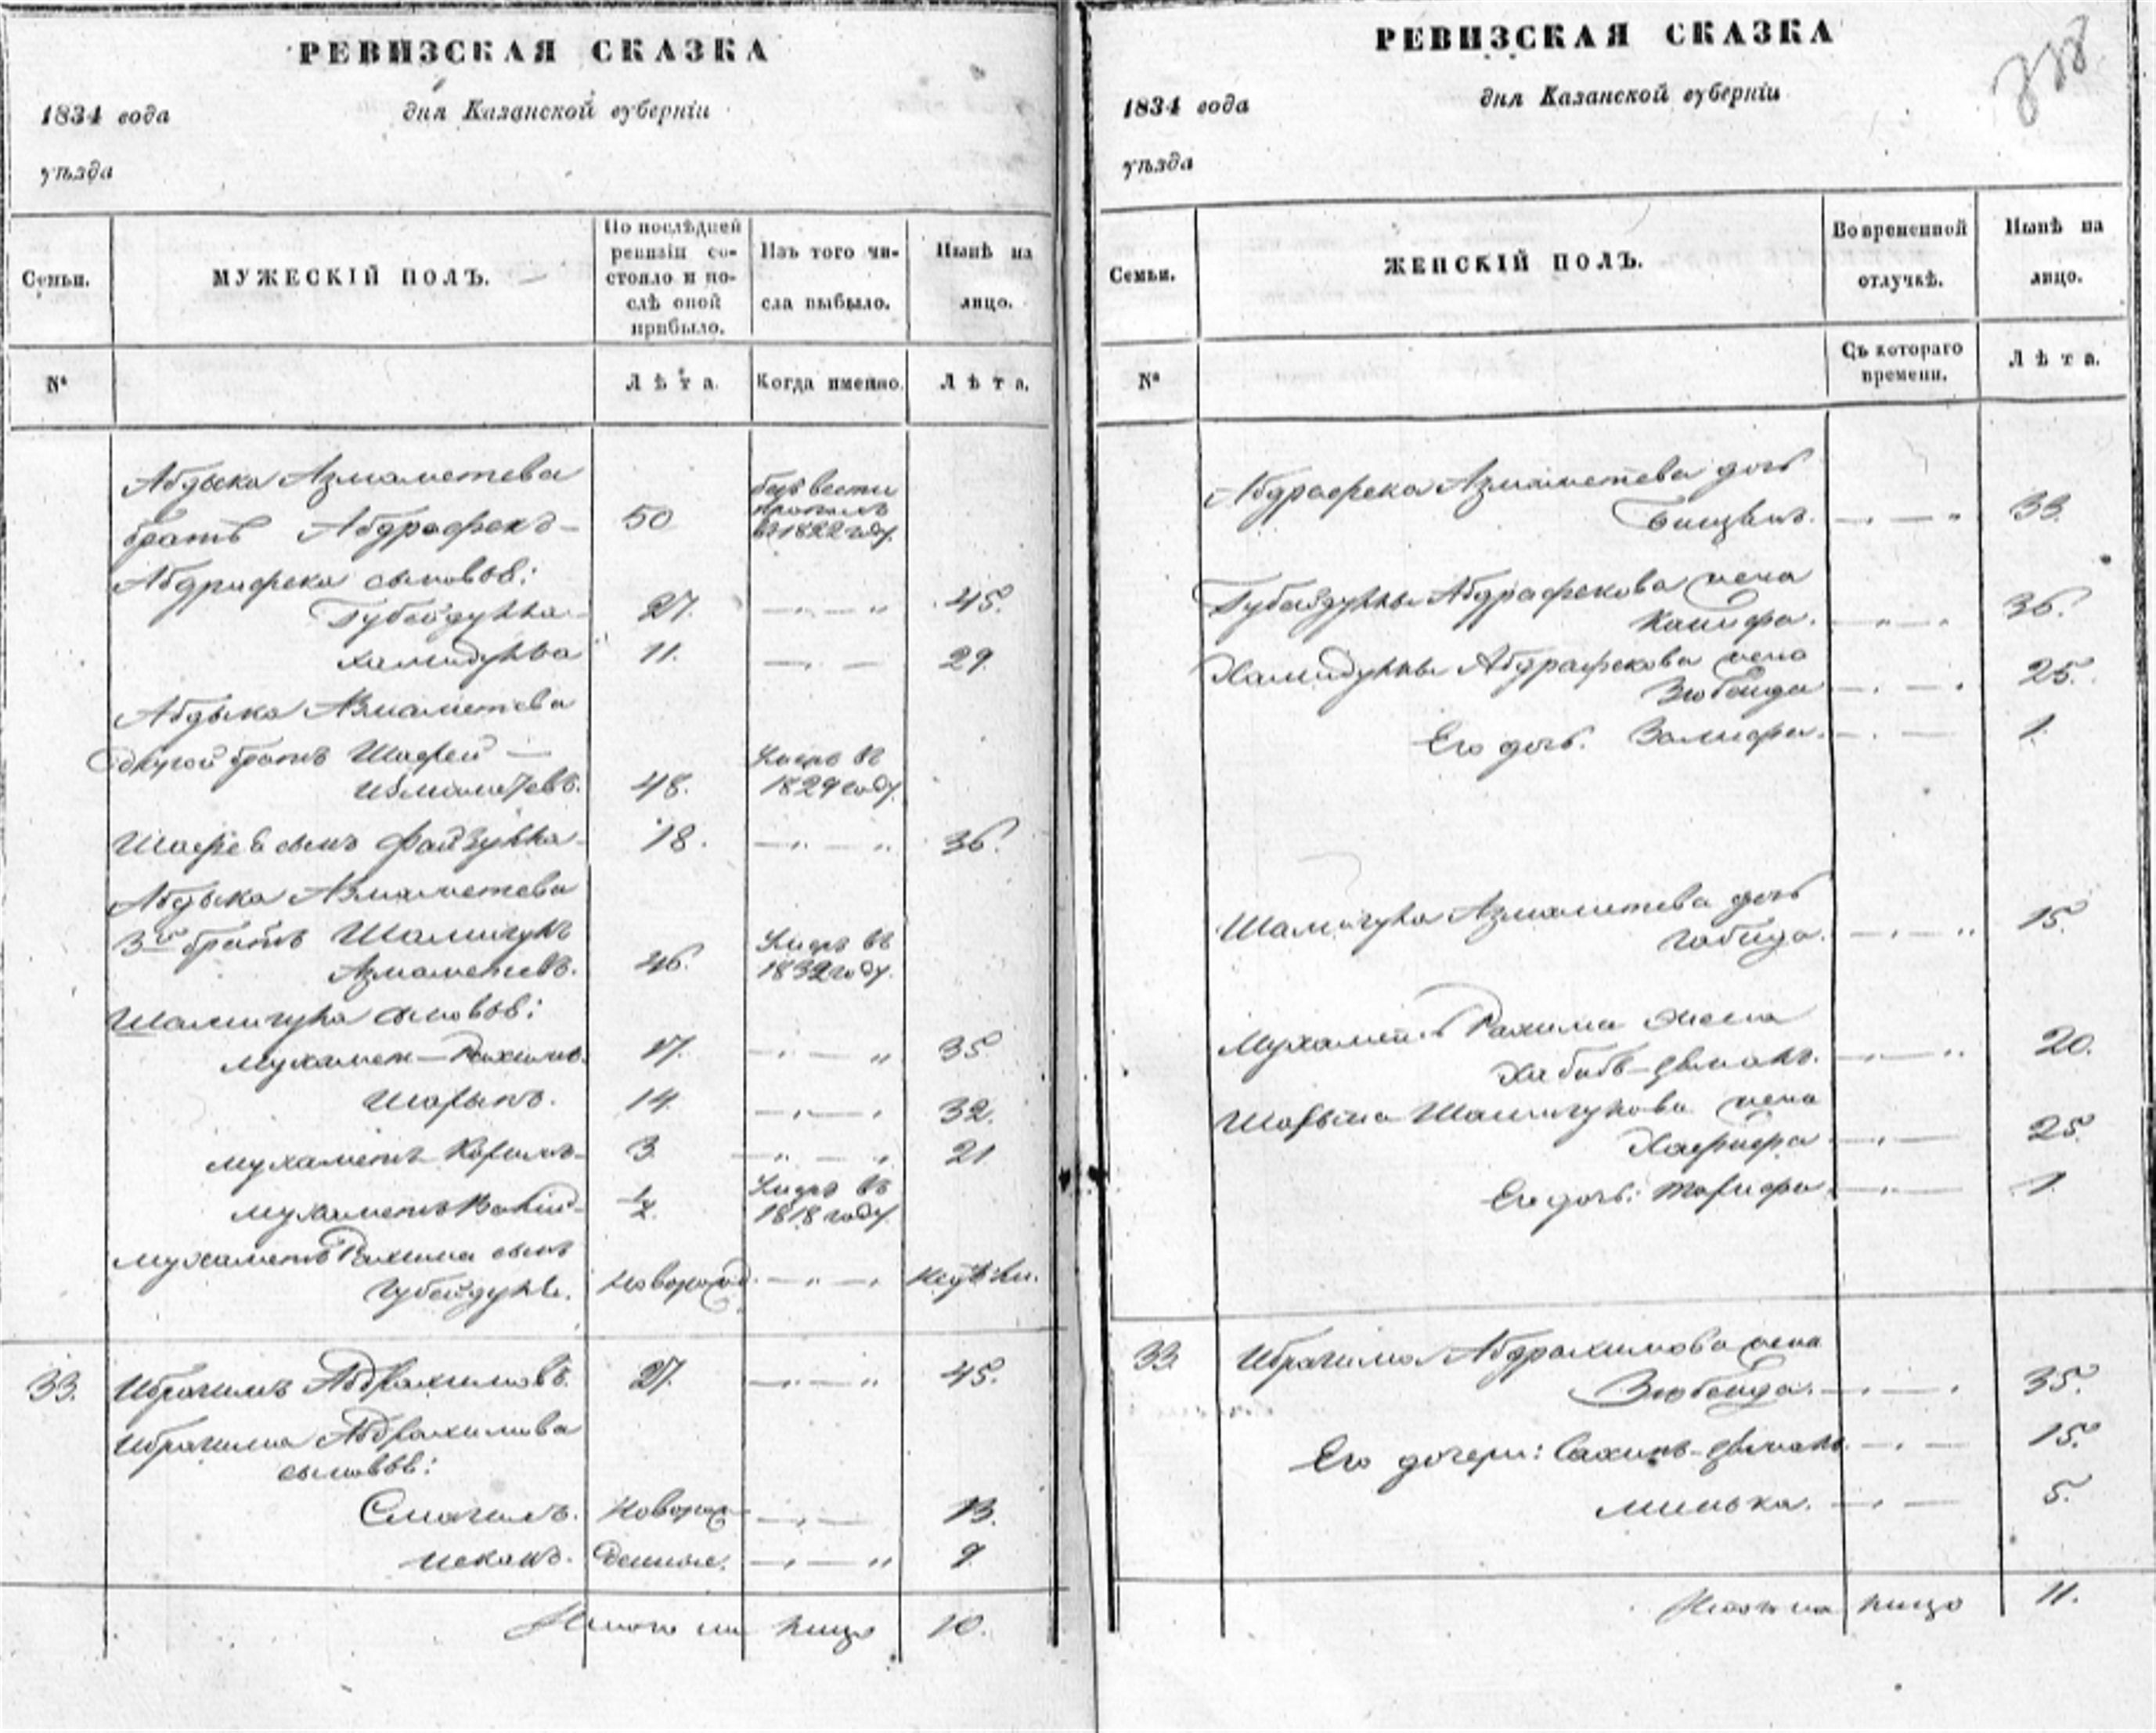 РЕВИЗСКАЯ СКАЗКА
1834 года дня Казанской губерніи
уѣзда
Семьи.
МУЖЕСКІЙ ПОЛЪ.
По послѣдней ревизіи состояло и послѣ оной прибыло.
Изъ того числа выбыло.
Нынѣ на лицо.
№
Лѣта.
Когда именно.
Лѣта.
Абдыка Азмаметева
братъ Абдрафекъ 50 безъ вести пропалъ въ 1822 году.
Абдрафека сыновья:
Губейдулла 27. 45.
Хамидулла 11. 29.
Абдыка Азмаметева
другой братъ Шафей
Азмаметевъ. 48. Умеръ въ 1829 году.
Шафея сынъ Файзулла 18. 36.
Абдыка Азмаметева
3й братъ Шамигулъ
Азмаметевъ. 46. Умеръ въ 1832 году.
Шамигула сыновья:
Мухамет-Рахимъ. 17. 35
14. 32.
Мухаметъ Каримъ 3. 21
Мухаметъ ½ Умеръ въ 1818 году.
Мухаметъ Рахима сынъ
Губейдулла. Новорожд.
33. Ибрагимъ Абдрахимовъ. 27. 45.
Ибрагима Абдрахимова
сыновья:
Смагилъ. Новорож- 13.
Искакъ. денные. 9.
Итого на лицо 10.
РЕВИЗСКАЯ СКАЗКА
1834 года дня Казанской губерніи
уѣзда
Семьи.
ЖЕНСКІЙ ПОЛЪ.
Во временной отлучкѣ.
Нынѣ на лицо.
№
Съ котораго времени.
Лѣта.
Абдрафека Азмаметева дочь
33.
Губейдуллы Абдрафекова жена
36.
Хамидуллы Абдрафекова жена
Зюбеида 25.
Его дочь. Залифа. 1.
Шамигула Азмаметева дочь
Габида. 15.
Мухаметъ Рахима жена
Хабибъ-Зямалъ. 20.
Шамигулова жена
Хафифа 25.
Его дочь: 1.
33. Ибрагима Абдрахимова жена
Зюбеида. 35.
Его дочери: Сахипъ-Зямалъ. 15.
Минька. 5.
Итого на лицо 11.